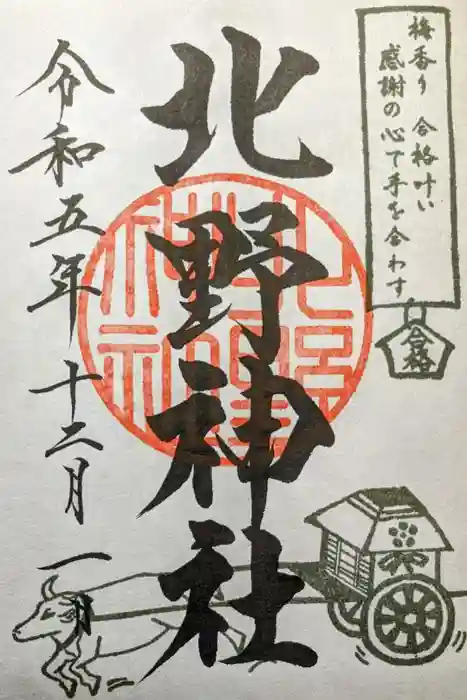 梅香り 合格叶い
感謝の心で手を合わす
合格
北野神社
令和五年 十二月 一日